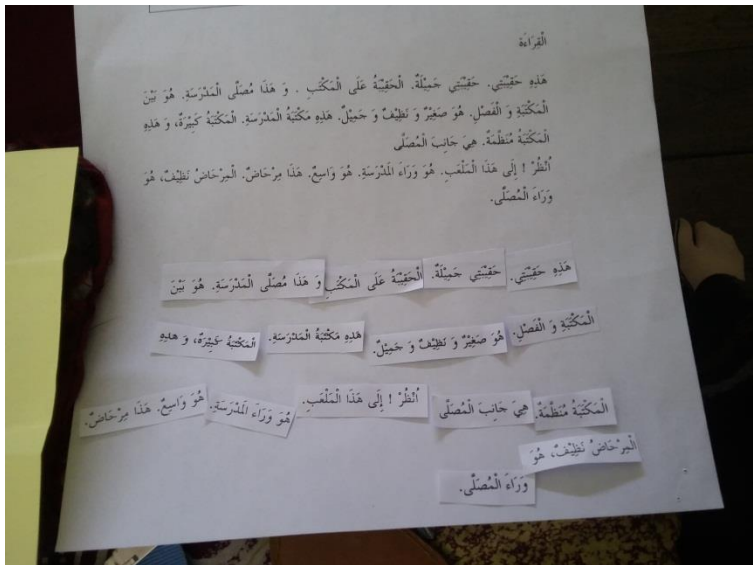 الْقِرَاءَة
هَذِهِ حَقِيْبَتِي. حَقِيْبَتِي جَمِيْلَةٌ. الْحَقِيْبَةُ عَلَى الْمَكْتَبِ . وَ هَذَا مُصَلَّى الْمَدْرَسَةِ. هُوَ بَيْنَ
الْمَكْتَبَةِ وَ الْفَصْلِ. هُوَ صَغِيْرٌ وَ نَظِيْفٌ وَ جَمِيْلٌ. هَذِهِ مَكْتَبَةُ الْمَدْرَسَةِ. الْمَكْتَبَةُ كَبِيْرَةٌ، وَ هَذِهِ
الْمَكْتَبَةُ مُنَظَّمَةٌ. هِيَ جَانِبَ الْمُصَلَّى
اُنْظُرْ ! إِلَى هَذَا الْمَلْعَبِ. هُوَ وَرَاءَ الْمَدْرَسَةِ. هُوَ وَاسِعٌ. هَذَا مِرْحَاضٌ. الْمِرْحَاضُ نَظِيْفٌ، هُوَ
وَرَاءَ الْمُصَلَّى.
هَذِهِ حَقِيْبَتِي. حَقِيْبَتِي جَمِيْلَةٌ. الْحَقِيْبَةُ عَلَى الْمَكْتَبِ وَ هَذَا مُصَلَّى الْمَدْرَسَةِ. هُوَ بَيْنَ
الْمَكْتَبَةِ وَ الْفَصْلِ. هُوَ صَغِيْرٌ وَ نَظِيْفٌ وَ جَمِيْلٌ. هَذِهِ مَكْتَبَةُ الْمَدْرَسَةِ. الْمَكْتَبَةُ كَبِيْرَةٌ، وَ هَذِهِ
الْمَكْتَبَةُ مُنَظَّمَةٌ. هِيَ جَانِبَ الْمُصَلَّى اُنْظُرْ ! إِلَى هَذَا الْمَلْعَبِ. هُوَ وَرَاءَ الْمَدْرَسَةِ. هُوَ وَاسِعٌ. هَذَا مِرْحَاضٌ.
الْمِرْحَاضُ نَظِيْفٌ، هُوَ
وَرَاءَ الْمُصَلَّى.